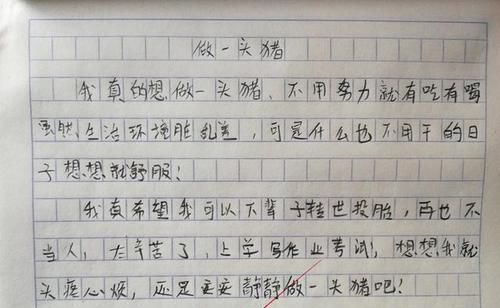 做一头猪
我真的想做一头猪、不用努力就有吃有喝
虽然、生活环境脏乱差，可是什么也不用干的日
子想想就舒服！
我真希望我可以下辈子转世投胎，再也不
当人，太辛苦了，上学写作业考试！想想我就
头疼心烦，还是安安静静做一头猪吧！